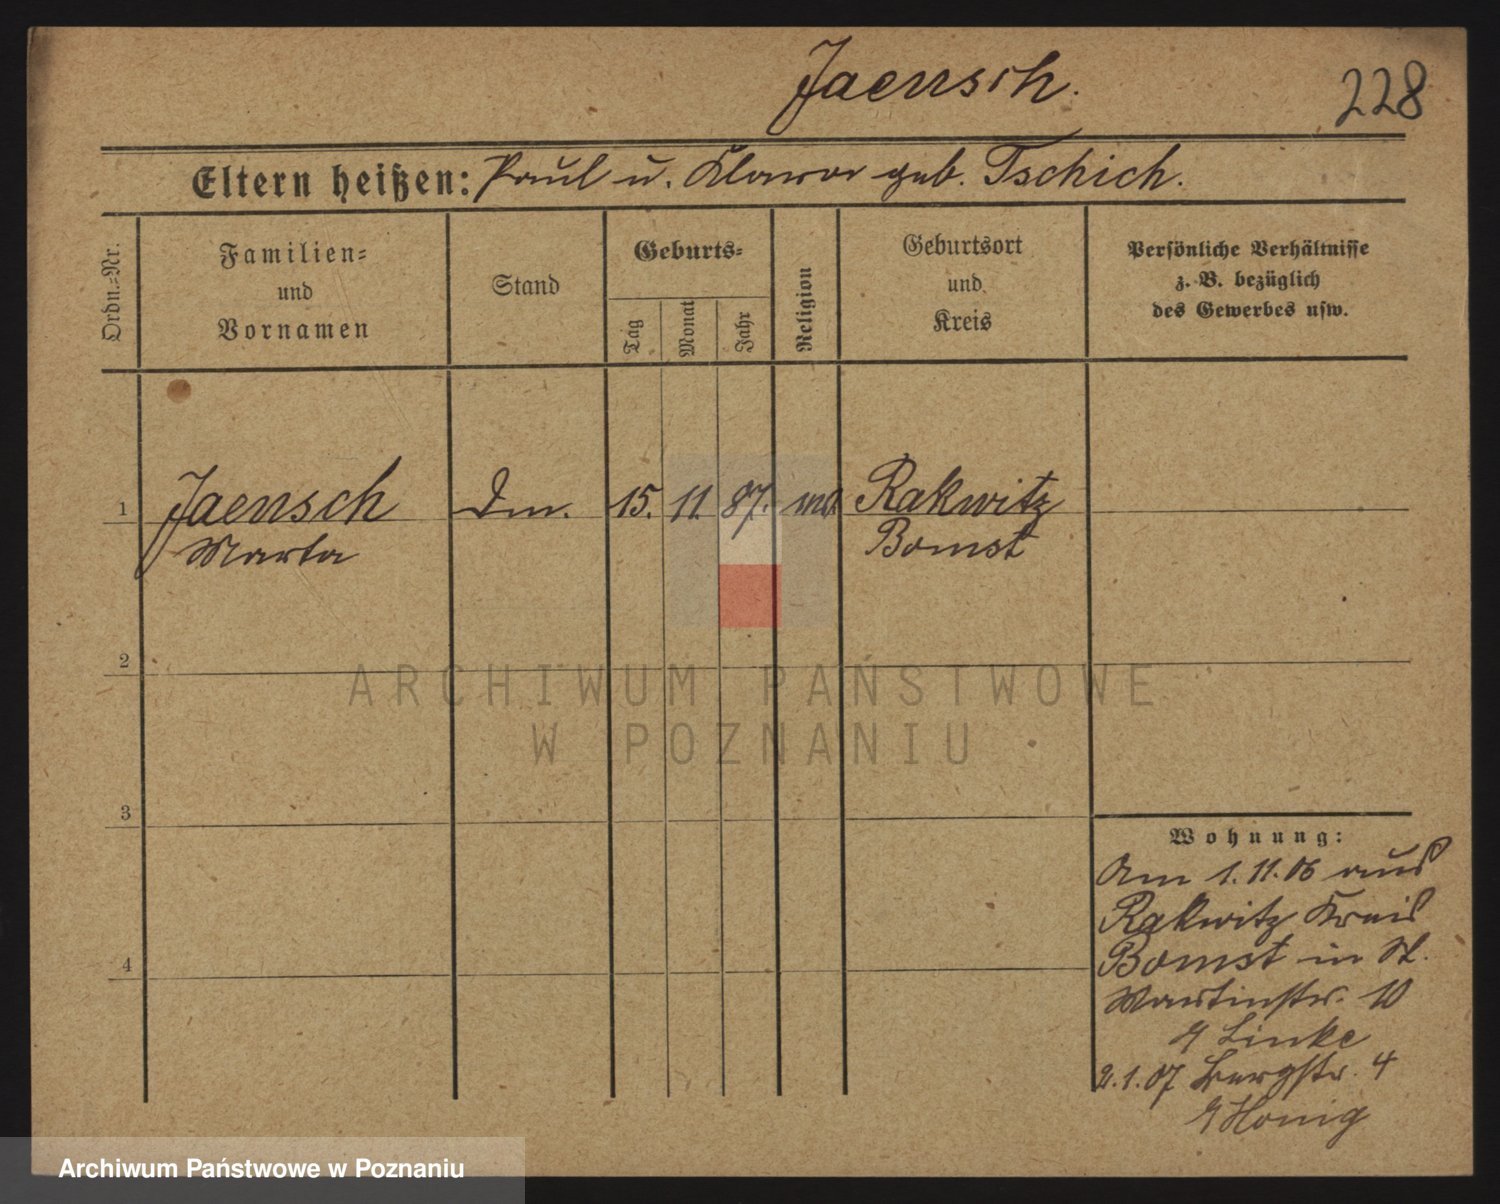 Jaensch.
228
Eltern heißen: Paul u. Klara geb. Tschich.
Ordn.=Nr.
Familien=
und
Vornamen
Stand
Geburts=
Tag
Monat
Jahr
Religion
Geburtsort
und
Kreis
Persönliche Verhältnisse
z. B. bezüglich
des Gewerbes usw.
1
Jaensch
Marta
15. 11. 87.
Rakwitz
Bomst
2
3
4
Wohnung:
Am 1.11.06 aus
Rakwitz Kreis
Bomst in St.
Martinstr. 10
Linke
2.1.07 Bergstr. 4
Honig
ARCHIWUM PAŃSTWOWE
W POZNANIU
Archiwum Państwowe w Poznaniu